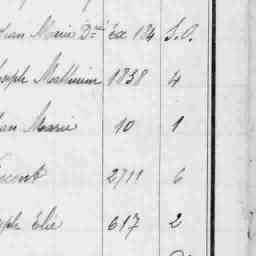 Jean Marie Dné Ex 184 S.O.
Joseph Mathurin 1838 4
Jean Marie 10 1
Vincent 2711 6
Joseph Elie 617 2